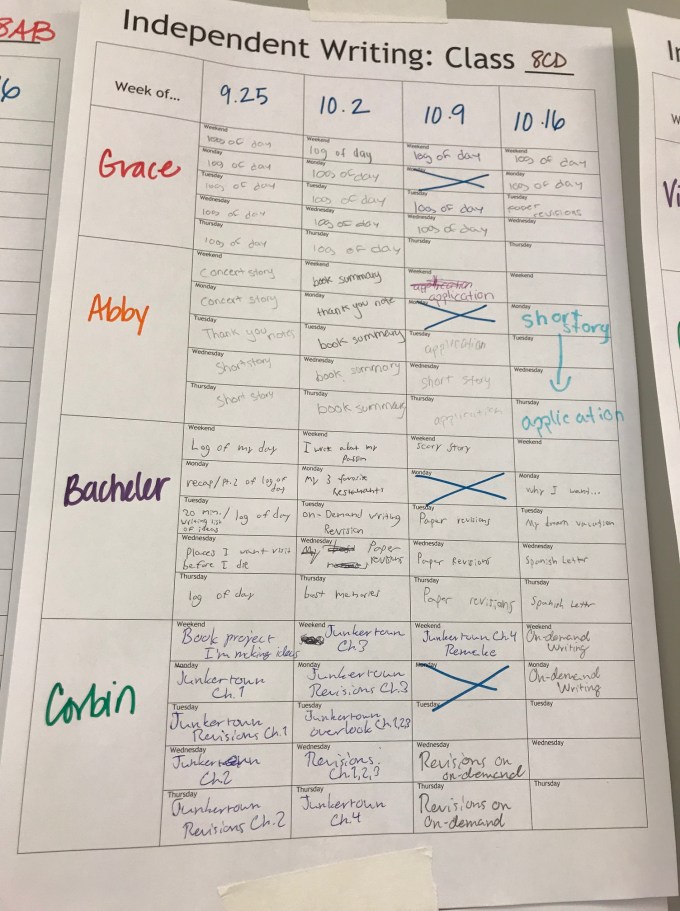 8AB
Independent Writing: Class 8CD
Week of...
9.25
10.2
10.9
10.16
Grace
Weekend
log of day
Monday
log of day
Tuesday
log of day
Wednesday
log of day
Thursday
log of day
Weekend
log of day
Monday
log of day
Tuesday
log of day
Wednesday
log of day
Thursday
log of day
Weekend
log of day
Tuesday
log of day
Wednesday
log of day
Thursday
Weekend
log of day
Monday
log of day
Tuesday
paper
revisions
Wednesday
Thursday
Abby
Weekend
Concert story
Monday
Concert story
Tuesday
Thank you notes
Wednesday
Short story
Thursday
Short story
Weekend
book summary
Monday
thank you note
Tuesday
book summary
Wednesday
book summary
Thursday
book summary
Weekend
application
application
Monday
Tuesday
application
Wednesday
short story
Thursday
application
Weekend
Monday
short
story
Tuesday
Wednesday
Thursday
application
Bacheler
Weekend
Log of my day
Monday
recap/Pt.2 of log of
day
Tuesday
20 min./ log of day
writing list
of ideas
Wednesday
places I want visit
before I die
Thursday
log of day
Weekend
I write about my
Monday
My 3 favorite
Restaurants
Tuesday
on-Demand writing
Revision
Wednesday
My Paper
revisions
Thursday
best memories
Weekend
scary story
Monday
Tuesday
Paper revisions
Wednesday
Paper Revisions
Thursday
Paper revisions
Weekend
Monday
Why I want...
Tuesday
My dream vacation
Wednesday
Spanish Letter
Thursday
Spanish Letter
Corbin
Weekend
Book project
I'm making ideas
Monday
Junkertown
Ch.1
Tuesday
Junkertown
Revisions Ch.1
Wednesday
Junkertown
Ch.2
Thursday
Junkertown
Revisions Ch.2
Weekend
Junkertown
Ch.3
Monday
Junkertown
Revisions Ch.3
Tuesday
Junkertown
overlook Ch.1,2,3
Wednesday
Revisions
Ch.1,2,3
Thursday
Junkertown
Ch.4
Weekend
Junkertown Ch.4
Remake
Monday
Tuesday
Wednesday
Revisions on
on-demand
Thursday
Revisions on
on-demand
Weekend
On-demand
Writing
Monday
On-demand
Writing
Tuesday
Wednesday
Thursday